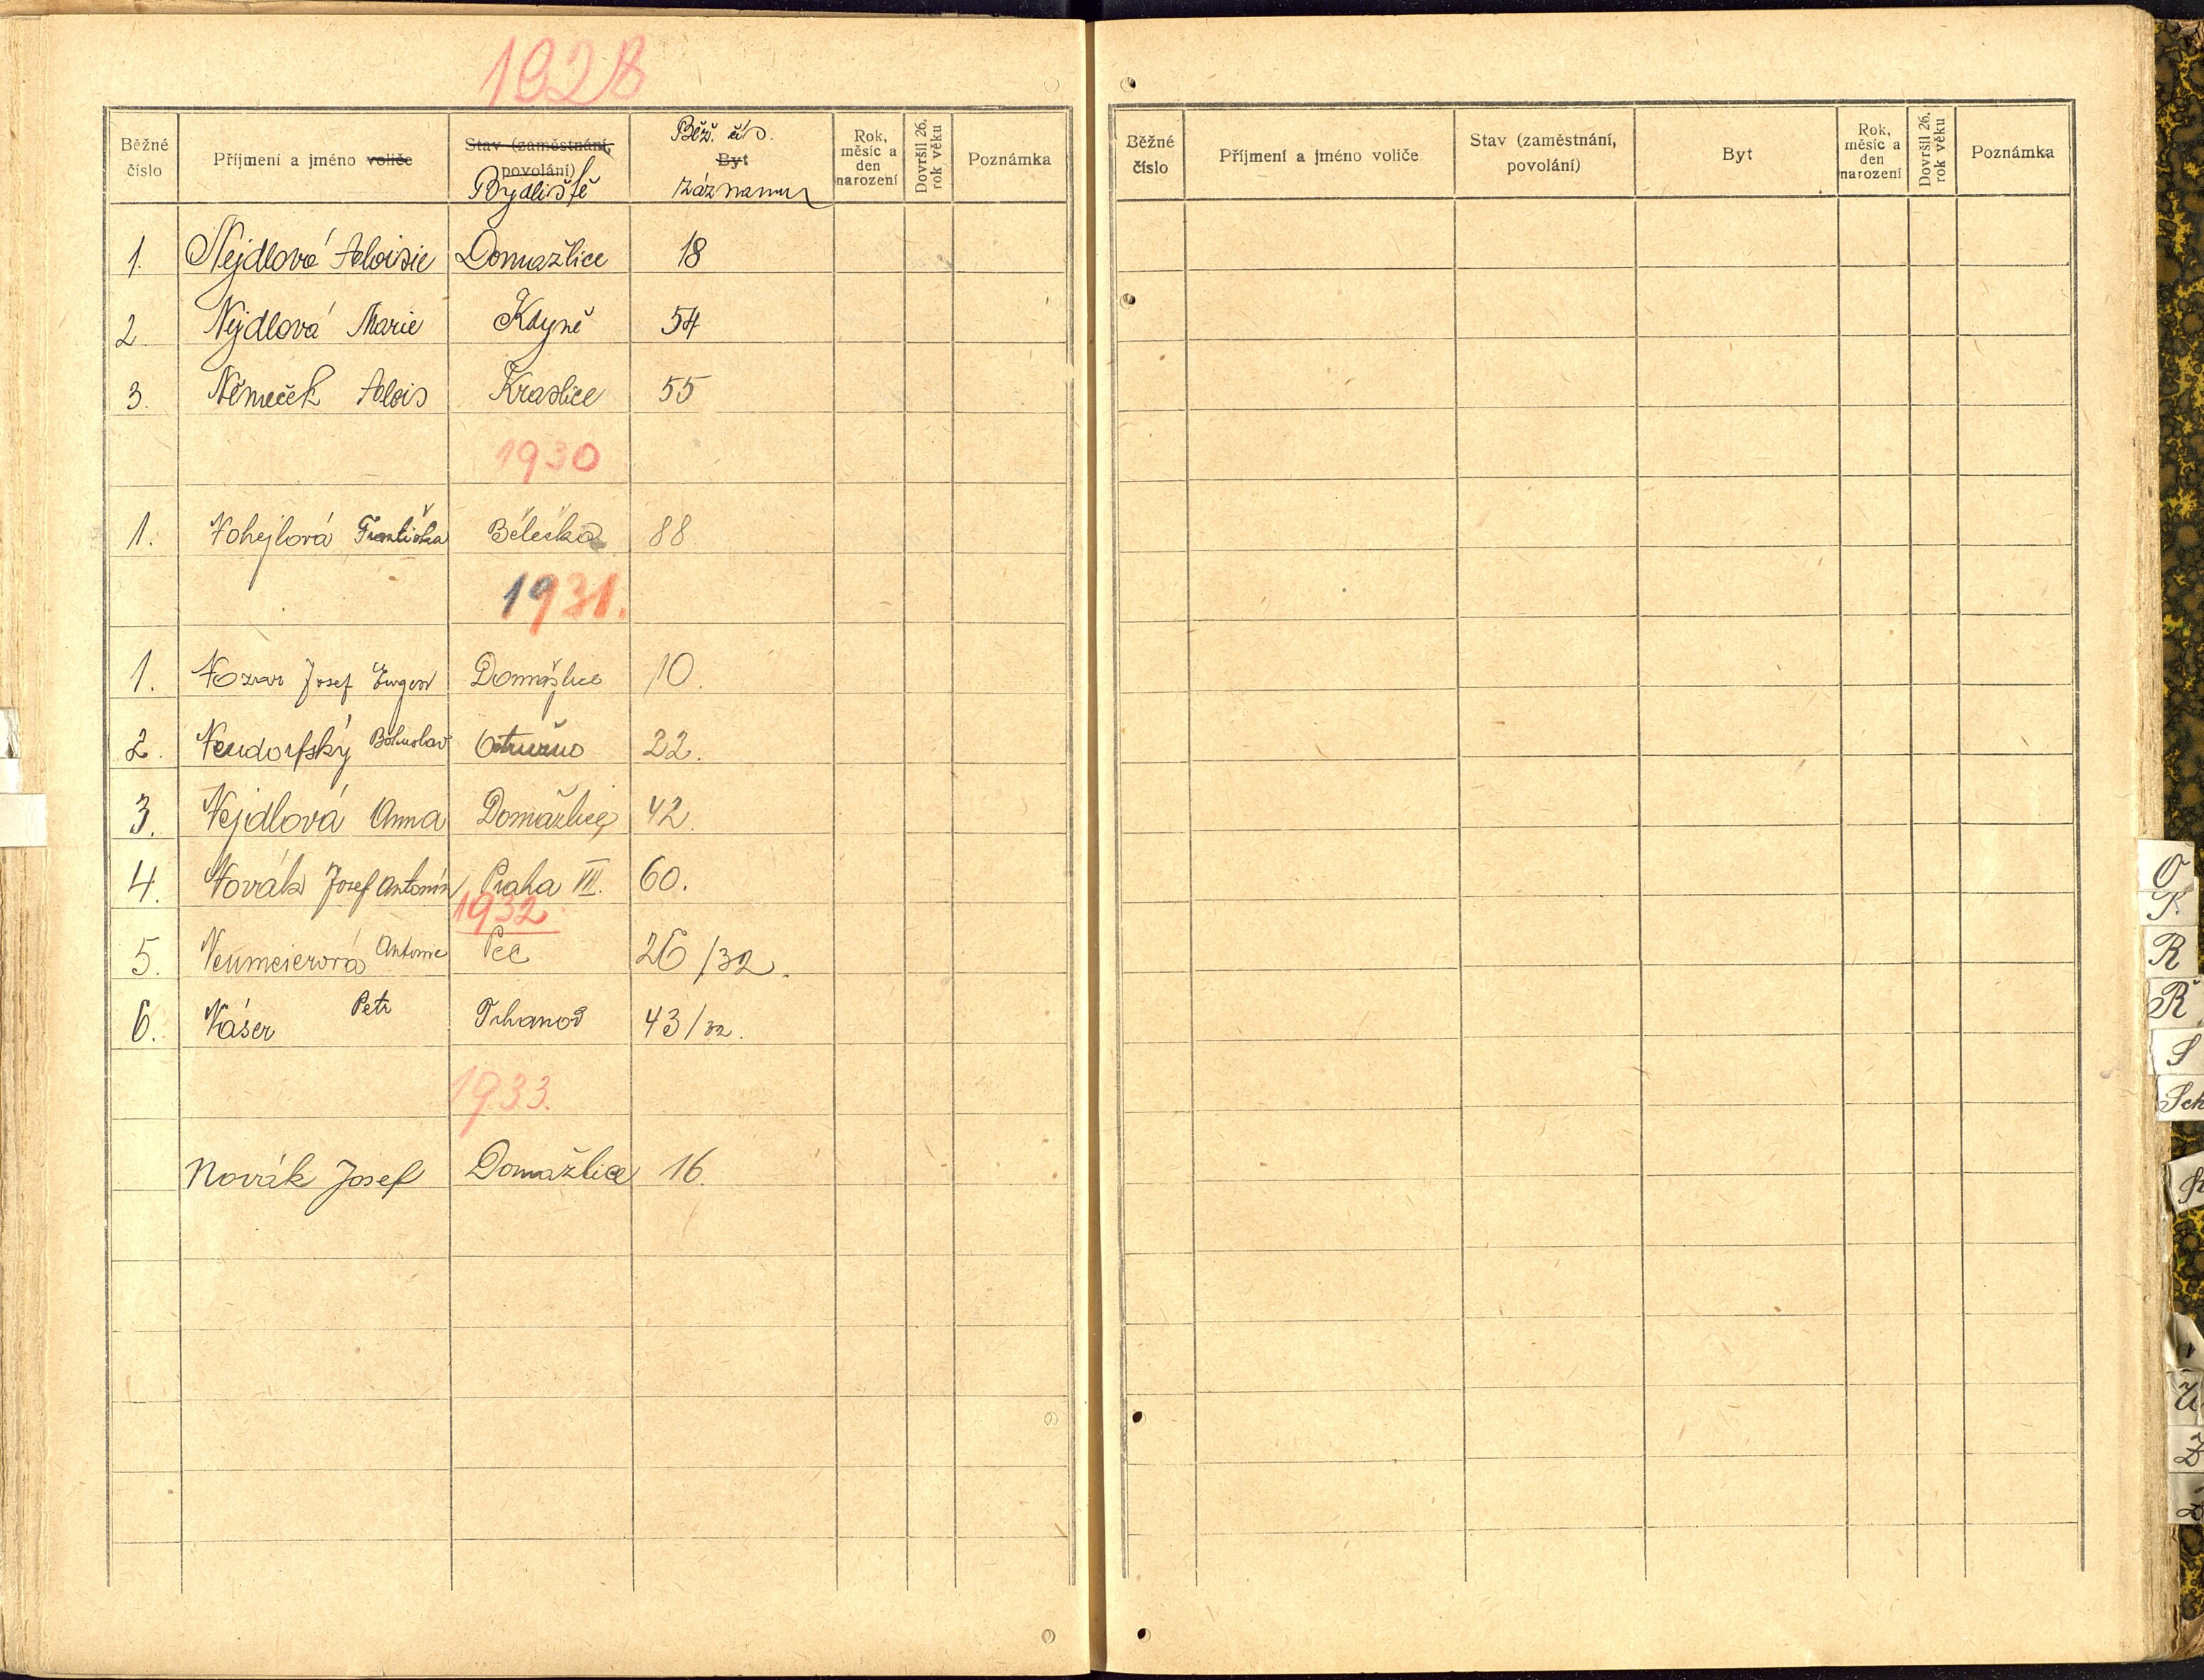 1928
Běžné číslo | Příjmení a jméno voliče | Stav (zaměstnání, povolání) Bydliště | Běž. čís. Byt záznamu | Rok, měsíc a den narození | Dovršil 26. rok věku | Poznámka
1. Nejdlová Aloisie Domažlice 18
2 Nejdlová Marie Kdyně 54
3. Němeček Alois Kraslice 55
1930
1. Nohejlová Františka 88
1931.
1. Josef Eugen Domažlice 10.
2. Neudorfský Bohuslav 22.
3. Nejdlová Anna Domažlice 42.
4. Novák Josef Antonín Praha VII. 60.
1932
5. Neumeierová Antonie Pec 26/32.
6. Náser Petr Trhanov 43/32.
1933.
Novák Josef Domažlice 16.
Běžné číslo | Příjmení a jméno voliče | Stav (zaměstnání, povolání) | Byt | Rok, měsíc a den narození | Dovršil 26. rok věku | Poznámka
O
P.
R
Ř
S
Sch